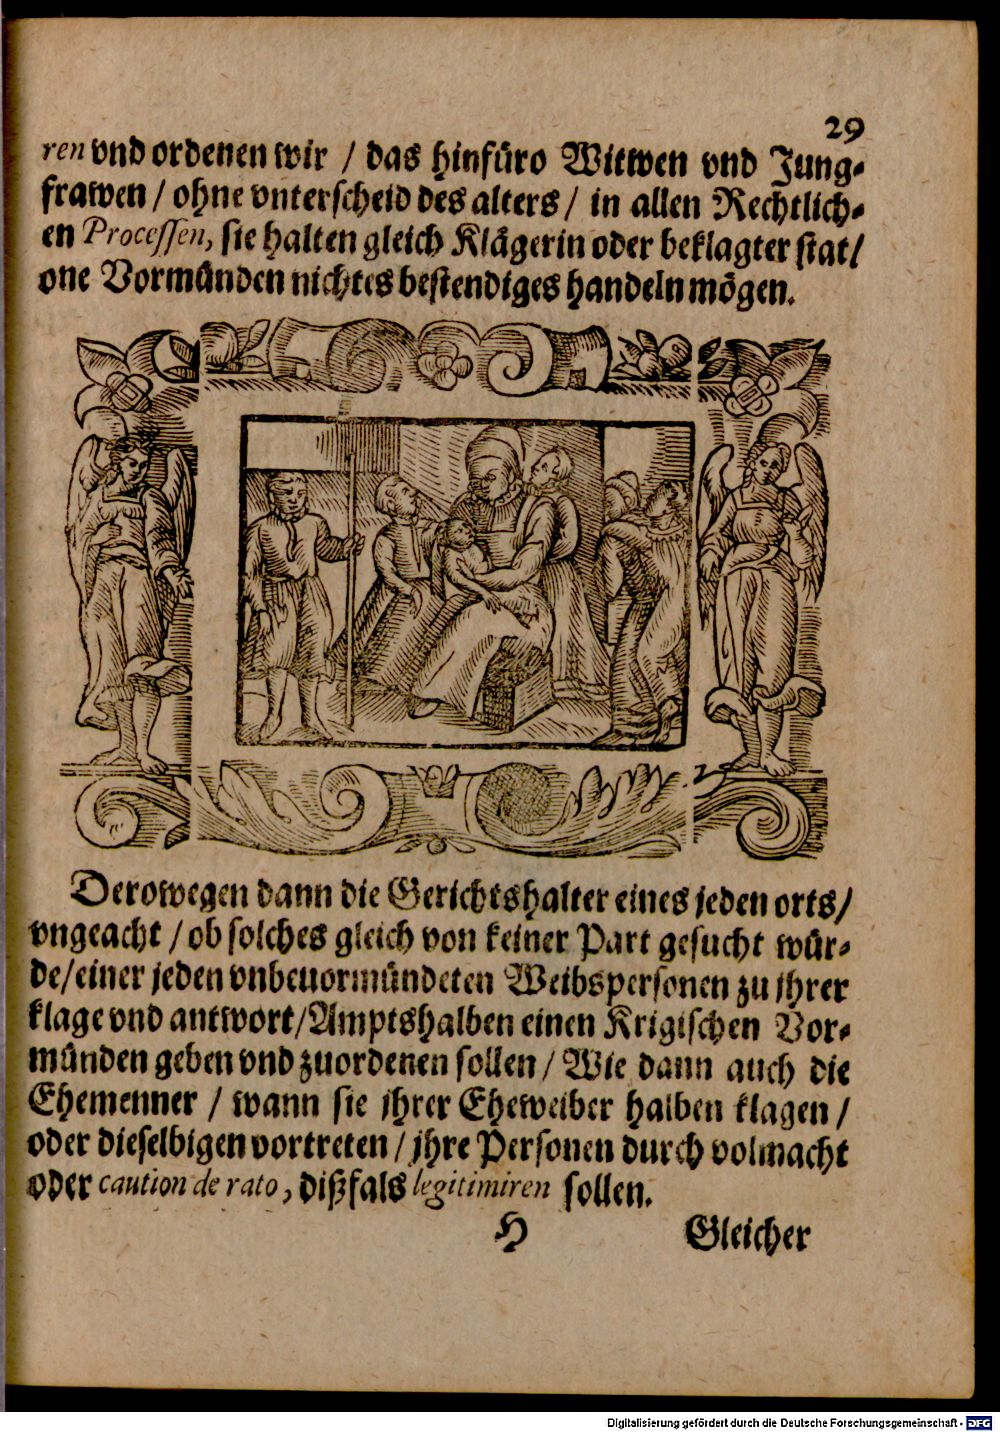 29
ren vnd ordenen wir / das hinfüro Witwen vnd Jung-
frawen / ohne vnterscheid des alters / in allen Rechtlich-
en Processen, sie halten gleich Klägerin oder beklagter stat /
one Vormünden nichtes bestendiges handeln mögen.
Derowegen dann die Gerichtshalter eines jeden orts /
vngeacht / ob solches gleich von keiner Part gesucht wür-
de / einer jeden vnbeuormündeten Weibspersonen zu jhrer
klage vnd antwort / Amptshalben einen Krigischen Vor-
münden geben vnd zuordenen sollen / Wie dann auch die
Ehemenner / wann sie jhrer Eheweiber halben klagen /
oder dieselbigen vortreten / jhre Personen durch volmacht
oder caution de rato, dißfals legitimiren sollen.
H Gleicher
Digitalisierung gefördert durch die Deutsche Forschungsgemeinschaft - DFG